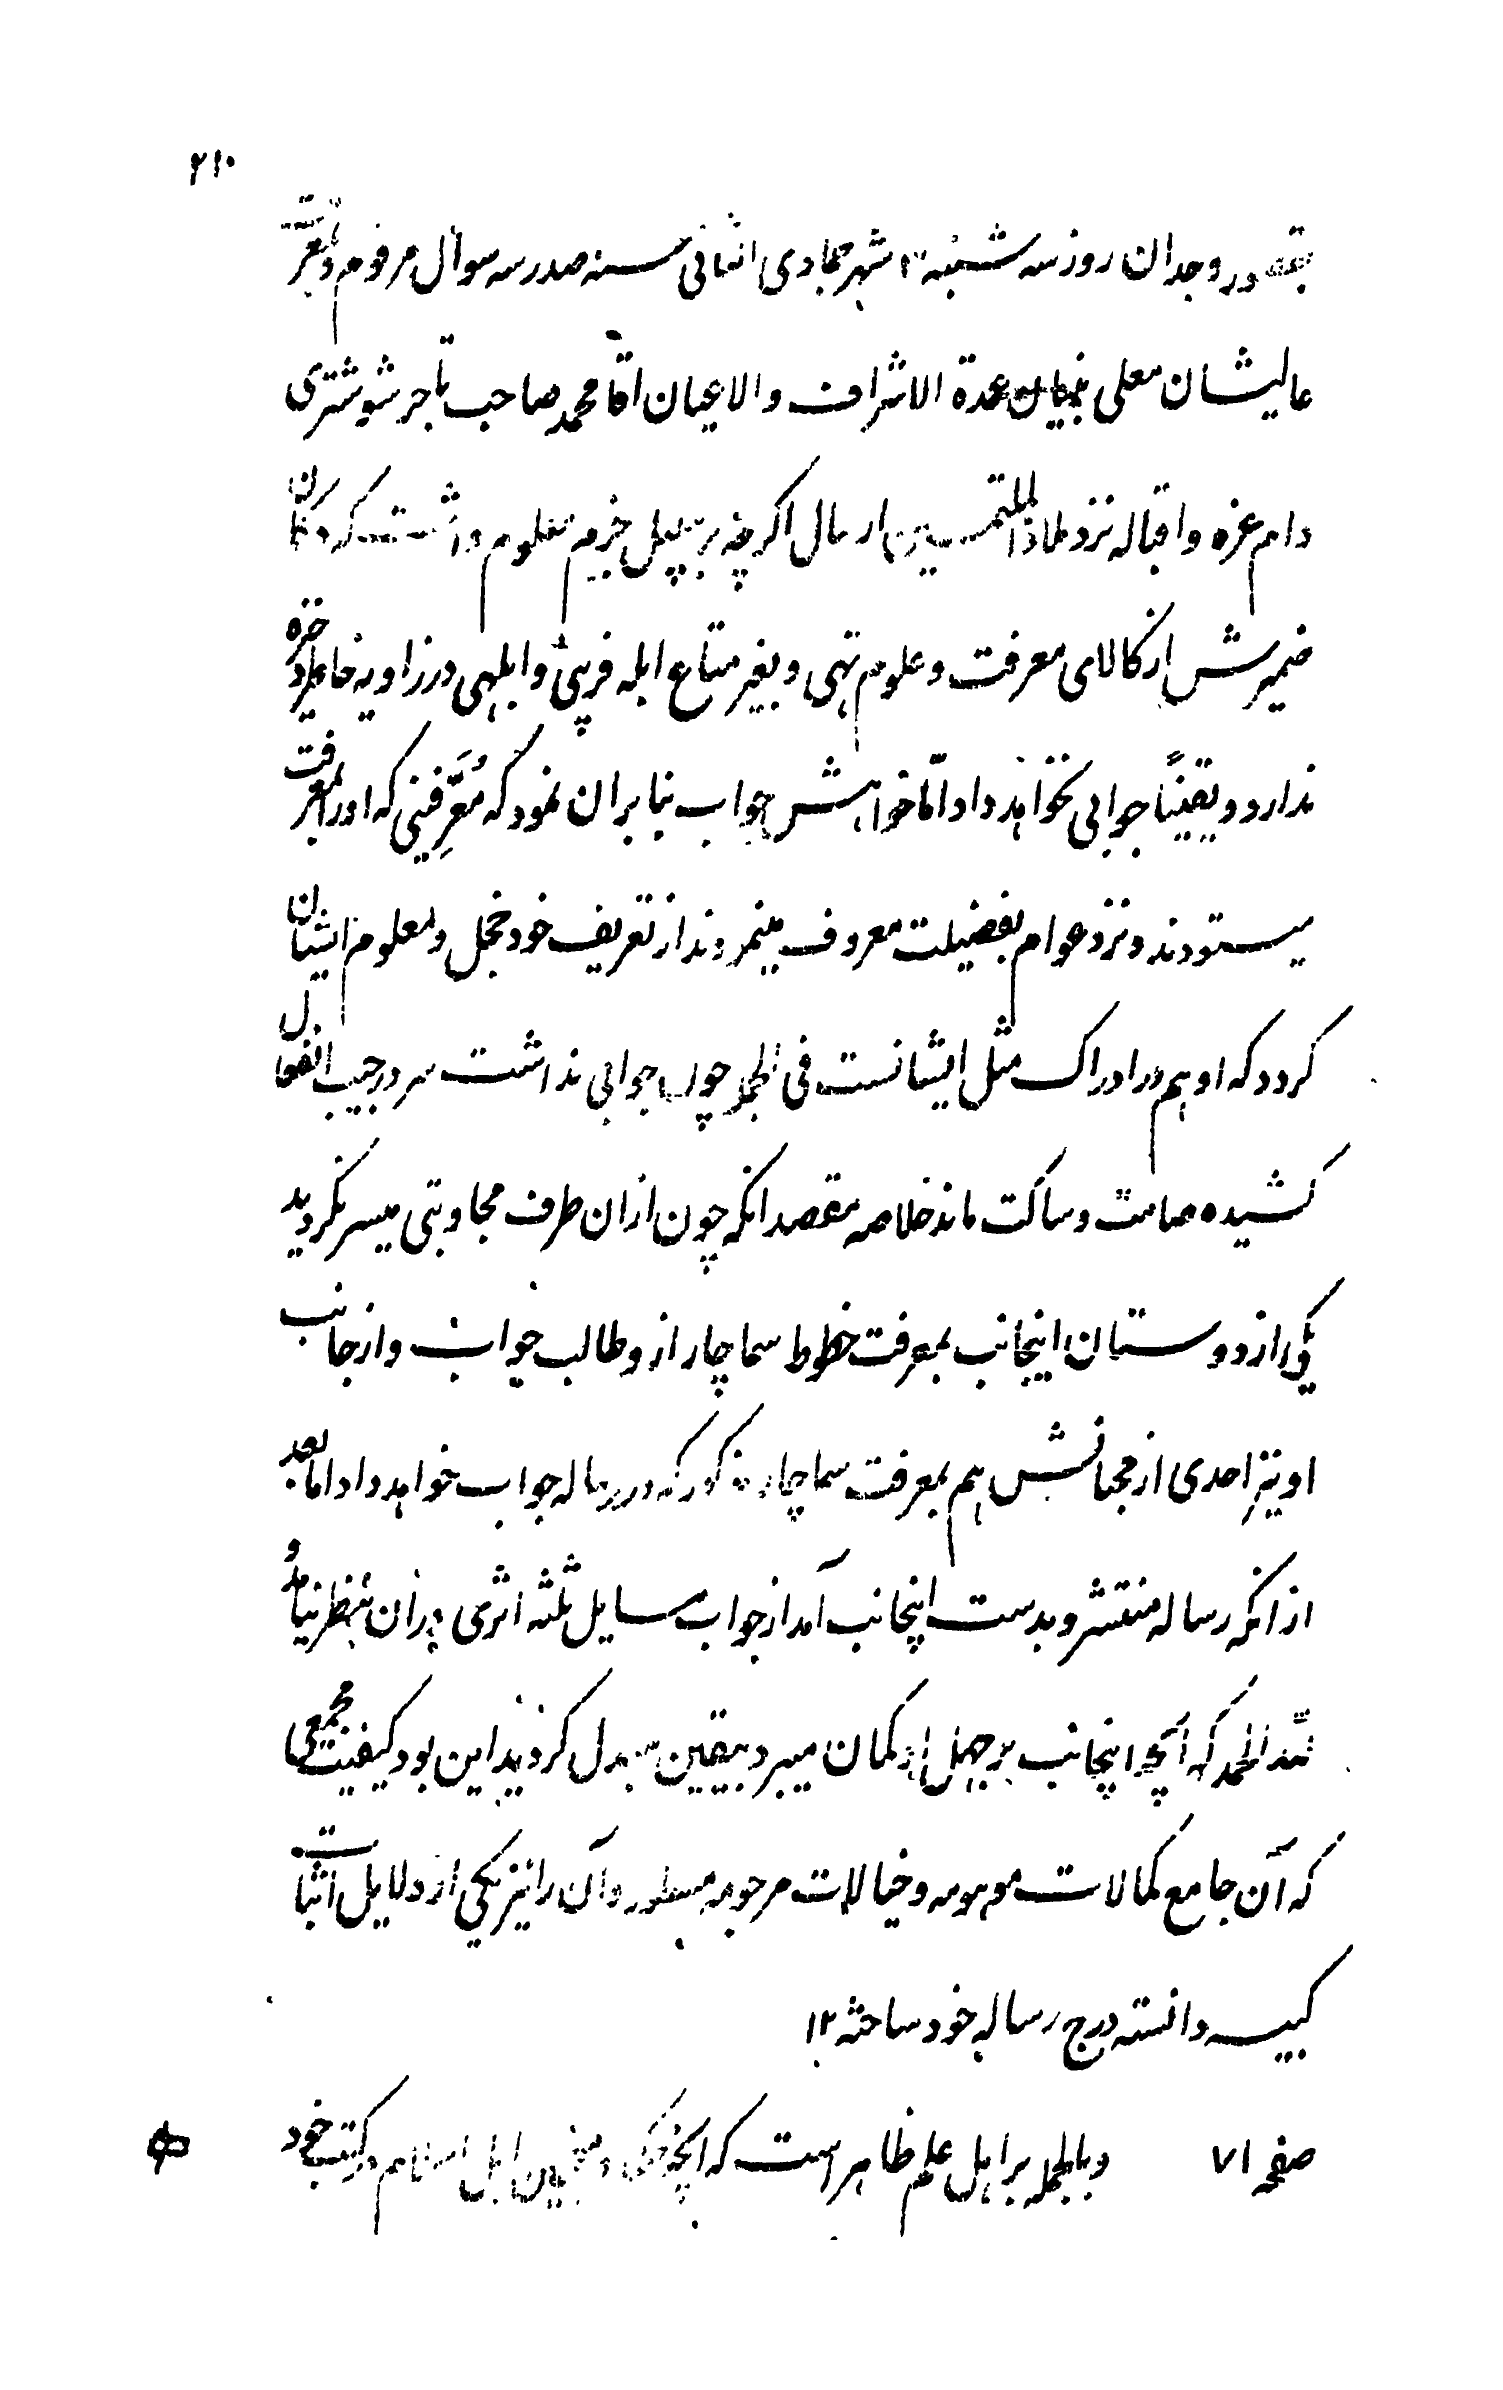 ۲۱۰
بقصور وجدان روز سه شنبه ۲۰ شهر جمادی الثانی سنه صدر سه سوال مرقوم و بمعرفت
عالیشان معلی بنیان عمدة الاشراف والاعیان اقا محمد صاحب تاجر شوشتری
دام عزه و اقباله نزد ملاذ ارسال اگرچه بر سبیل جزم معلوم داشت که دکان
ضمیرش از کالای معرفت و علوم تهی و بغیر متاع ابله فریبی و ابلهی در زاویه خاطر ذخیره
ندارد و یقیناً جوابی نخواهد داد امّا خواهش جواب بنابران نمود که مُعَرِّفینی که او را بمعرفت
میستودند و نزد عوام بفضیلت معروف مینمودند از تعریف خود خجل و معلوم ایشان
گردد که او هم در ادراک مثل ایشانست فی الجمله چون جوابی نداشت سر در جیب انفعال
کشیده صامت و ساکت ماند خلاصه مقصد انکه چون ازان طرف مجاوبتی میسر نگردید
یکی از دوستان اینجانب بمعرفت خطوط سماچار ازو طالب جواب و از جانب
او نیز احدی از مجانش هم بمعرفت سماچار مذکور که در رساله جواب خواهد داد اما بعد
از انکه رساله منتشر و بدست اینجانب آمد از جواب مسایل ثلثه اثری دران بنظر نیامد و
لله الحمد که آنچه اینجانب بر جهل او گمان میبرد بیقین مبدل گردید این بود کیفیت مجمعی
که آن جامع کمالات موهومه و خیالات مرجومه مسطور و آن را نیز یکی از دلایل اثبات
کبیسه دانسته درج رساله خود ساخته ۱۲
صفحه ۷۱ وبالجمله بر اهل علم ظاهر است که انچه منجمین اهل اسلام در کتب خود